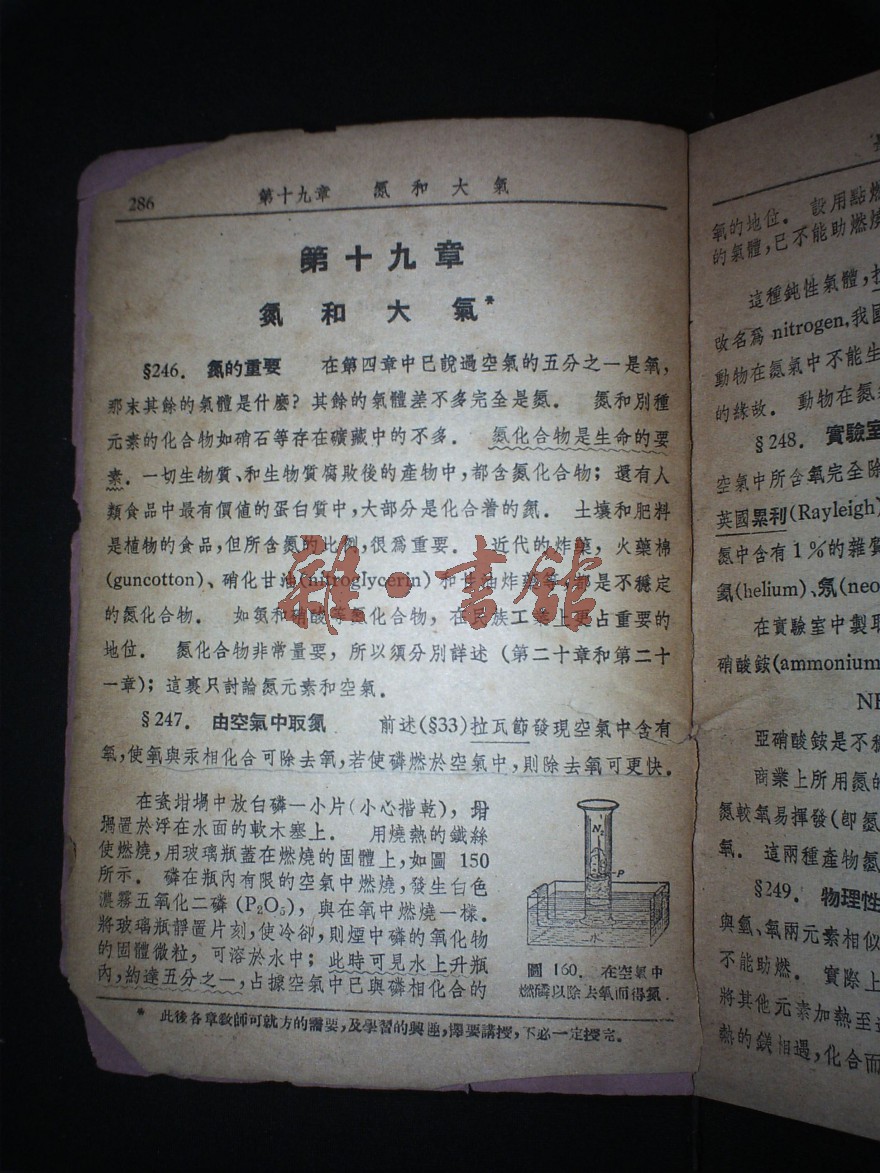 286 第十九章 氮和大氣
第十九章
氮和大氣*
§246. 氮的重要 在第四章中已說過空氣的五分之一是氧,
那末其餘的氣體是什麼? 其餘的氣體差不多完全是氮. 氮和別種
元素的化合物如硝石等存在礦藏中的不多. 氮化合物是生命的要
素. 一切生物質、和生物質腐敗後的產物中,都含氮化合物; 還有人
類食品中最有價值的蛋白質中,大部分是化合着的氮. 土壤和肥料
是植物的食品,但所含氮的比例,很爲重要. 近代的炸藥, 火藥棉
(guncotton)、硝化甘油(nitroglycerin)和甘油炸藥等,都是不穩定
的氮化合物. 如氨和硝酸等氮化合物, 在民族工業上更占重要的
地位. 氮化合物非常重要, 所以須分別詳述 (第二十章和第二十
一章); 這裏只討論氮元素和空氣.
§247. 由空氣中取氮 前述(§33)拉瓦節發現空氣中含有
氧,使氧與汞相化合可除去氧,若使磷燃於空氣中,則除去氧可更快.
在瓷坩堝中放白磷一小片(小心揩乾), 坩
堝置於浮在水面的軟木塞上. 用燒熱的鐵絲
使燃燒,用玻璃瓶蓋在燃燒的固體上,如圖 150
所示. 磷在瓶內有限的空氣中燃燒,發生白色
濃霧五氧化二磷 (P₂O₅), 與在氧中燃燒一樣.
將玻璃瓶靜置片刻,使冷卻,則煙中磷的氧化物
的固體微粒, 可溶於水中; 此時可見水上升瓶
內,約達五分之一,占據空氣中已與磷相化合的
N₂
P
水
圖 160. 在空氣中
燃磷以除去氧而得氮.
* 此後各章教師可就方的需要,及學習的興趣,擇要講授,不必一定授完.
雜·書館
氧的地位. 設用點燃
的氣體,已不能助燃燒
這種鈍性氣體,
改名爲 nitrogen,我國
動物在氮氣中不能生
的緣故. 動物在氮
§248. 實驗室
空氣中所含氧完全除
英國累利(Rayleigh)
氮中含有1%的雜質
氦(helium)、氖(neo
在實驗室中製取
硝酸銨(ammonium
亞硝酸銨是不穩
商業上所用氮的
氮較氧易揮發(卽氮
氧. 這兩種產物氮
§249. 物理性
與氫、氧兩元素相似
不能助燃. 實際上
將其他元素加熱至
熱的鎂相遇,化合而